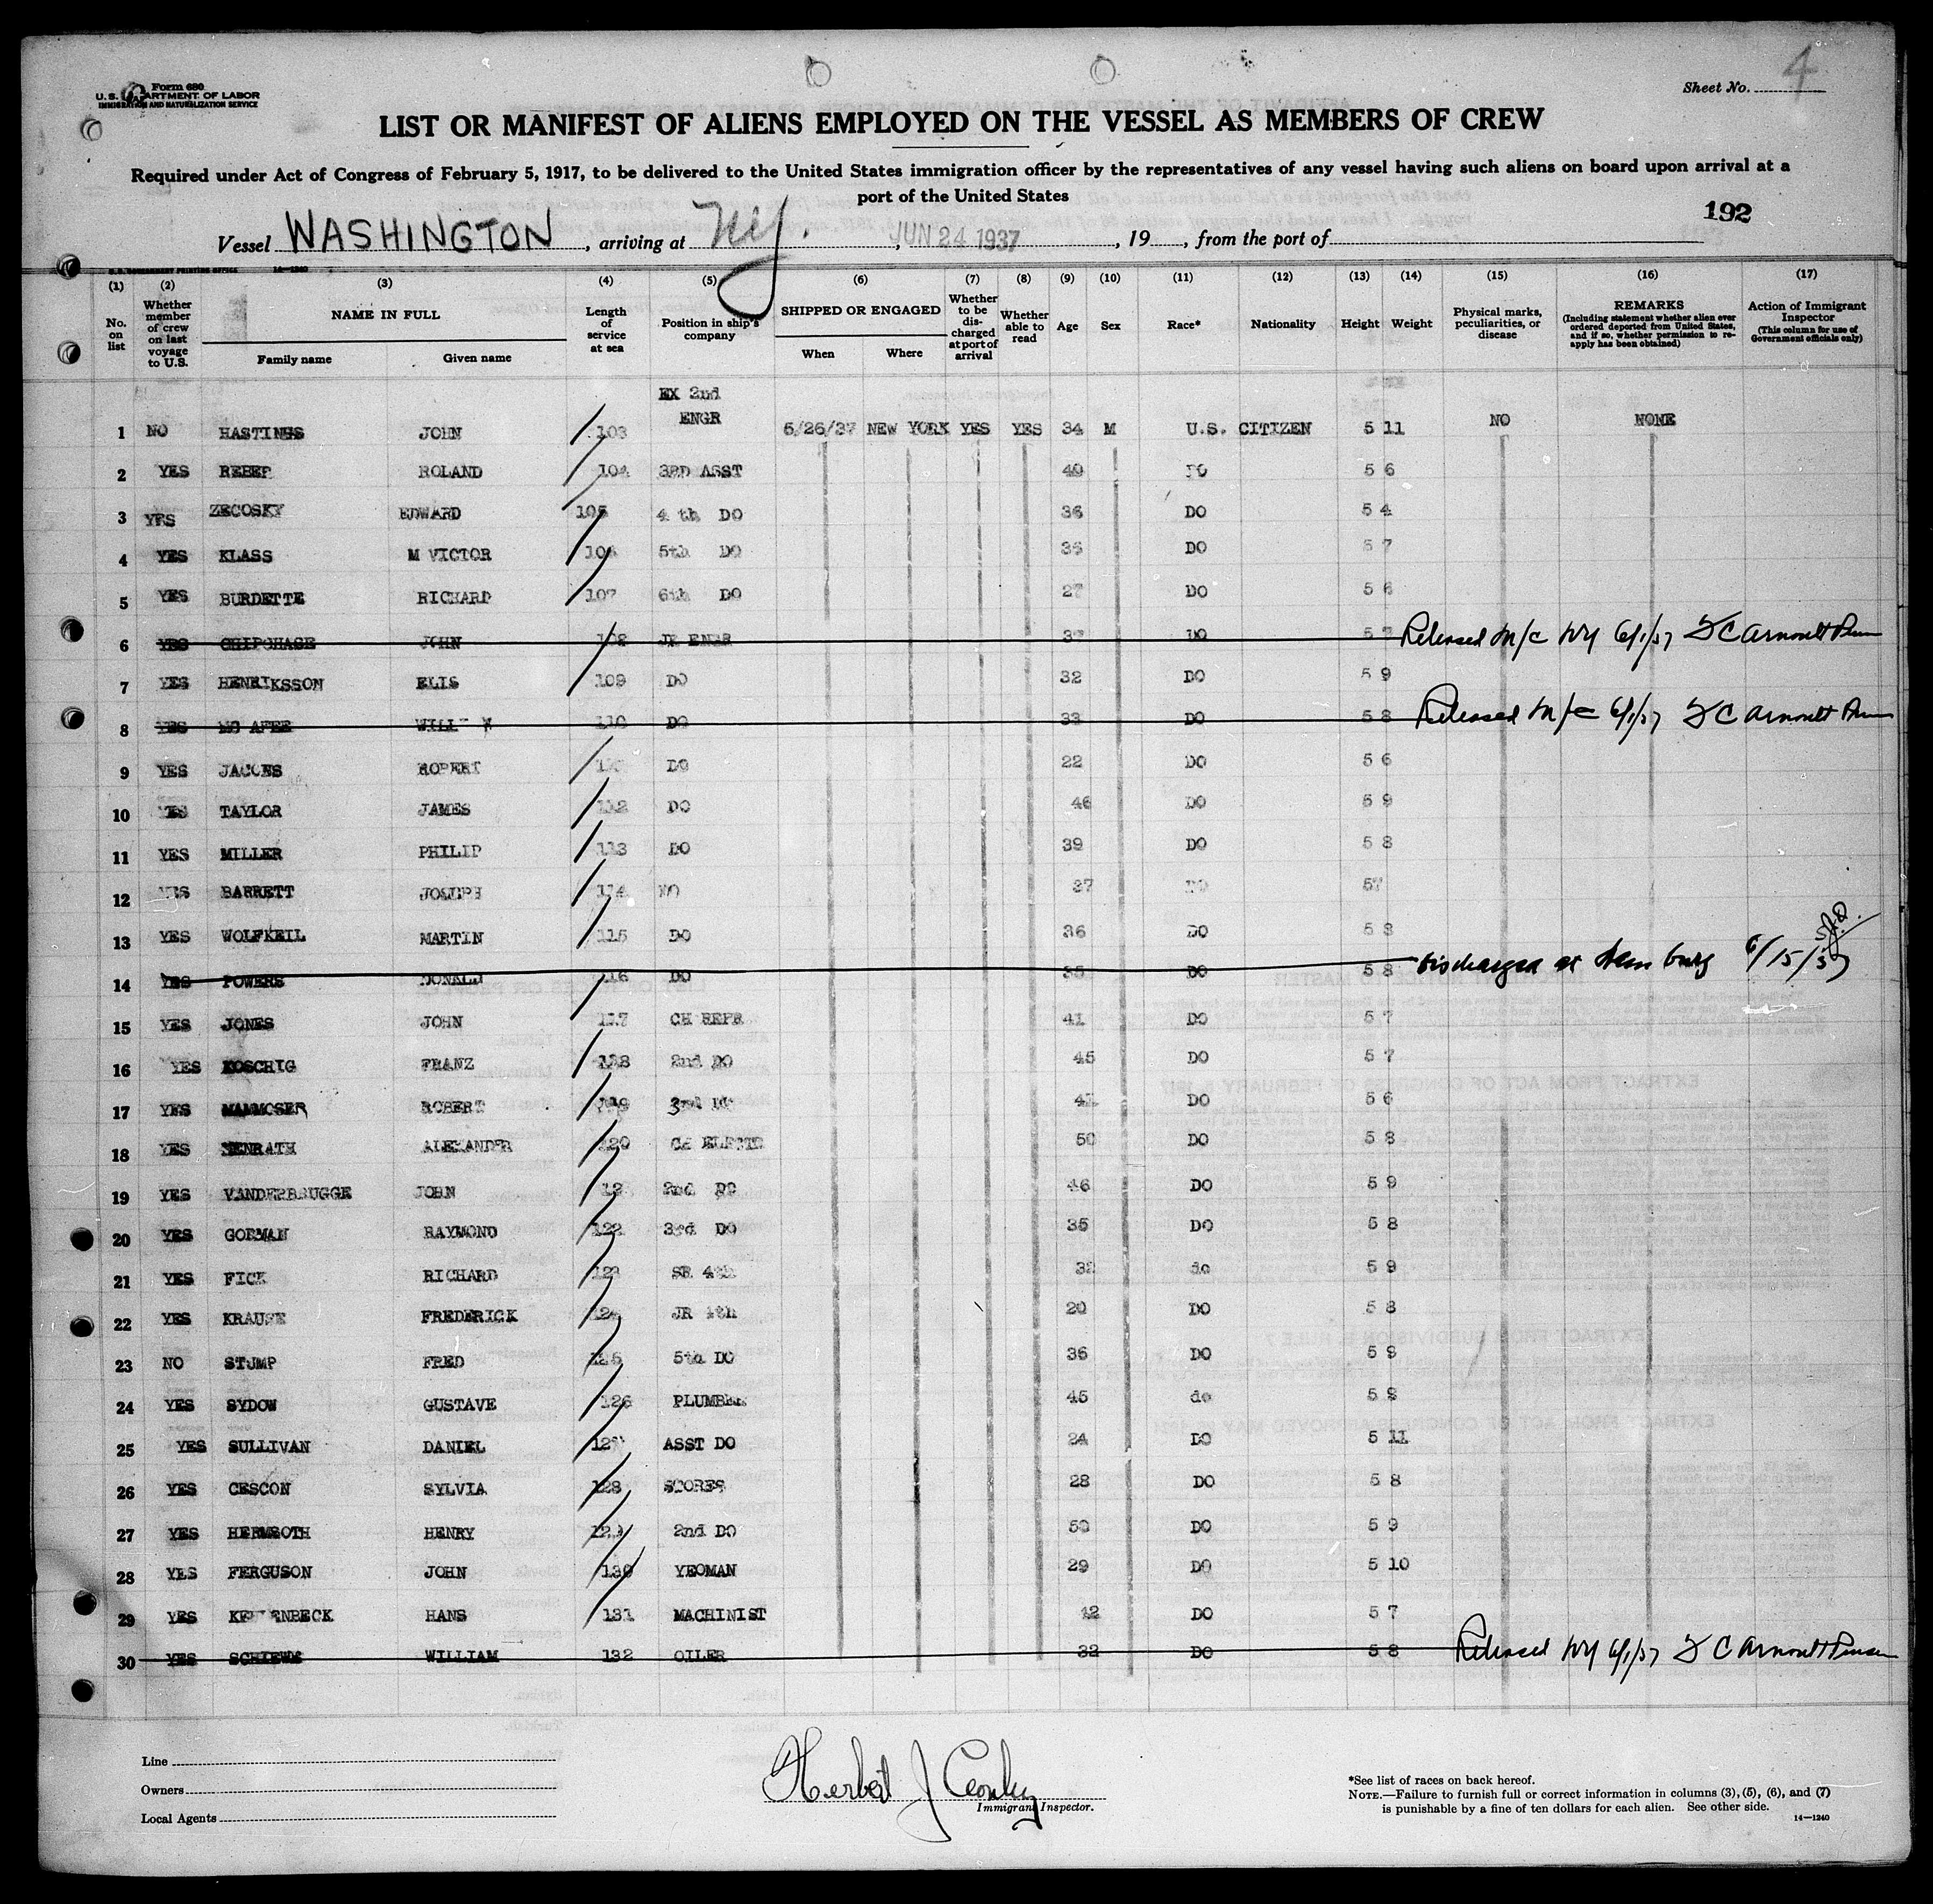 Form 680
U. S. DEPARTMENT OF LABOR
IMMIGRATION AND NATURALIZATION SERVICE
Sheet No. 4
LIST OR MANIFEST OF ALIENS EMPLOYED ON THE VESSEL AS MEMBERS OF CREW
Required under Act of Congress of February 5, 1917, to be delivered to the United States immigration officer by the representatives of any vessel having such aliens on board upon arrival at a
port of the United States
192
Vessel WASHINGTON, arriving at NY. JUN 24 1937, 19, from the port of
U. S. GOVERNMENT PRINTING OFFICE 14—1240
(1) (2) (3) (4) (5) (6) (7) (8) (9) (10) (11) (12) (13) (14) (15) (16) (17)
No. on list
Whether member of crew on last voyage to U.S.
NAME IN FULL
Family name Given name
Length of service at sea
Position in ship's company
SHIPPED OR ENGAGED
When Where
Whether to be discharged at port of arrival
Whether able to read
Age Sex Race* Nationality Height Weight
Physical marks, peculiarities, or disease
REMARKS
(Including statement whether alien ever ordered deported from United States, and if so, whether permission to reapply has been obtained)
Action of Immigrant Inspector
(This column for use of Government officials only)
EX 2nd
1 NO HASTINGS JOHN 103 ENGR 5/26/37 NEW YORK YES YES 34 M U.S. CITIZEN 5 11 NO NONE
2 YES REBER ROLAND 104 3RD ASST 40 DO 5 6
3 YES ZECOSKY EDWARD 105 4 th DO 36 DO 5 4
4 YES KLASS M VICTOR 106 5th DO 36 DO 5 7
5 YES BURDETTE RICHARD 107 6th DO 27 DO 5 6
6 YES CHIPCHASE JOHN 108 JR ENGR 37 DO 5 7 Released M/C NY 6/1/37
7 YES HENRIKSSON ELIS 109 DO 32 DO 5 9
8 YES MC AFEE DO 33 DO 5 8 Released M/C 6/1/37
9 YES ROBERT DO 22 DO 5 6
10 YES TAYLOR JAMES 112 DO 46 DO 5 9
11 YES MILLER PHILIP 113 DO 39 DO 5 8
12 YES BARRETT JOSEPH 114 37 DO 57
13 YES WOLFKEIL MARTIN 115 DO 36 DO 5 8
14 YES POWERS DONALD 116 DO 35 DO 5 8 Discharged at Hamburg 6/15/37
15 YES JONES JOHN 117 CH REFR 41 DO 5 7
16 YES KOSCHIG FRANZ 118 2nd DO 45 DO 5 7
17 YES MAMMOSER ROBERT 119 3rd DO 41 DO 5 6
18 YES ALEXANDER 120 50 DO 5 8
19 YES VANDERBRUGGE JOHN 12 2nd DO 46 DO 5 9
20 YES GORMAN RAYMOND 122 3rd DO 35 DO 5 8
21 YES FICK RICHARD 123 SR 4th 32 do 5 9
22 YES KRAUSE FREDERICK JR 4th 20 DO 5 8
23 NO STUMP FRED 125 5th DO 36 DO 5 9
24 YES SYDOW GUSTAVE 126 PLUMBER 45 do 5 8
25 YES SULLIVAN DANIEL 127 ASST DO 24 DO 5 11
26 YES CESCON SYLVIA 128 STORES 28 DO 5 8
27 YES HERMSOTH HENRY 129 2nd DO 50 DO 5 9
28 YES FERGUSON JOHN 130 YEOMAN 29 DO 5 10
29 YES HANS 131 MACHINIST 42 DO 5 7
30 YES WILLIAM 132 OILER 32 DO 5 8 Released NY 6/1/37
Line
Owners
Local Agents
Herbert J
Immigrant Inspector.
*See list of races on back hereof.
NOTE.—Failure to furnish full or correct information in columns (3), (5), (6), and (7)
is punishable by a fine of ten dollars for each alien. See other side.
14—1240